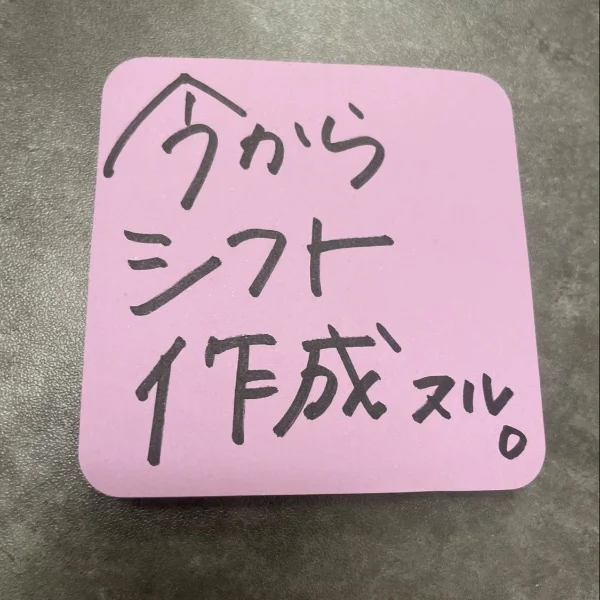 今から
シフト
作成スル。